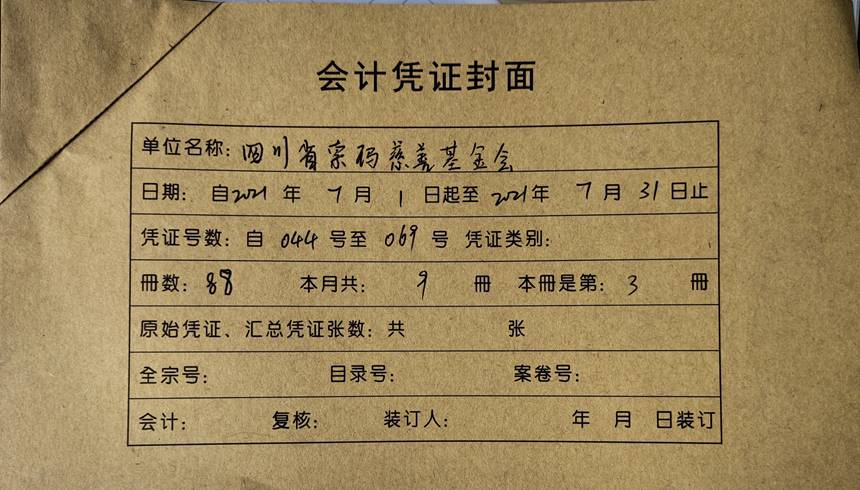 会计凭证封面
单位名称：四川省索玛慈善基金会
日期：自2021年7月1日起至2021年7月31日止
凭证号数：自044号至069号 凭证类别：
冊数：88 本月共：9冊 本冊是第：3冊
原始凭证、汇总凭证张数：共 张
全宗号： 目录号： 案卷号：
会计： 复核： 装订人： 年 月 日装订